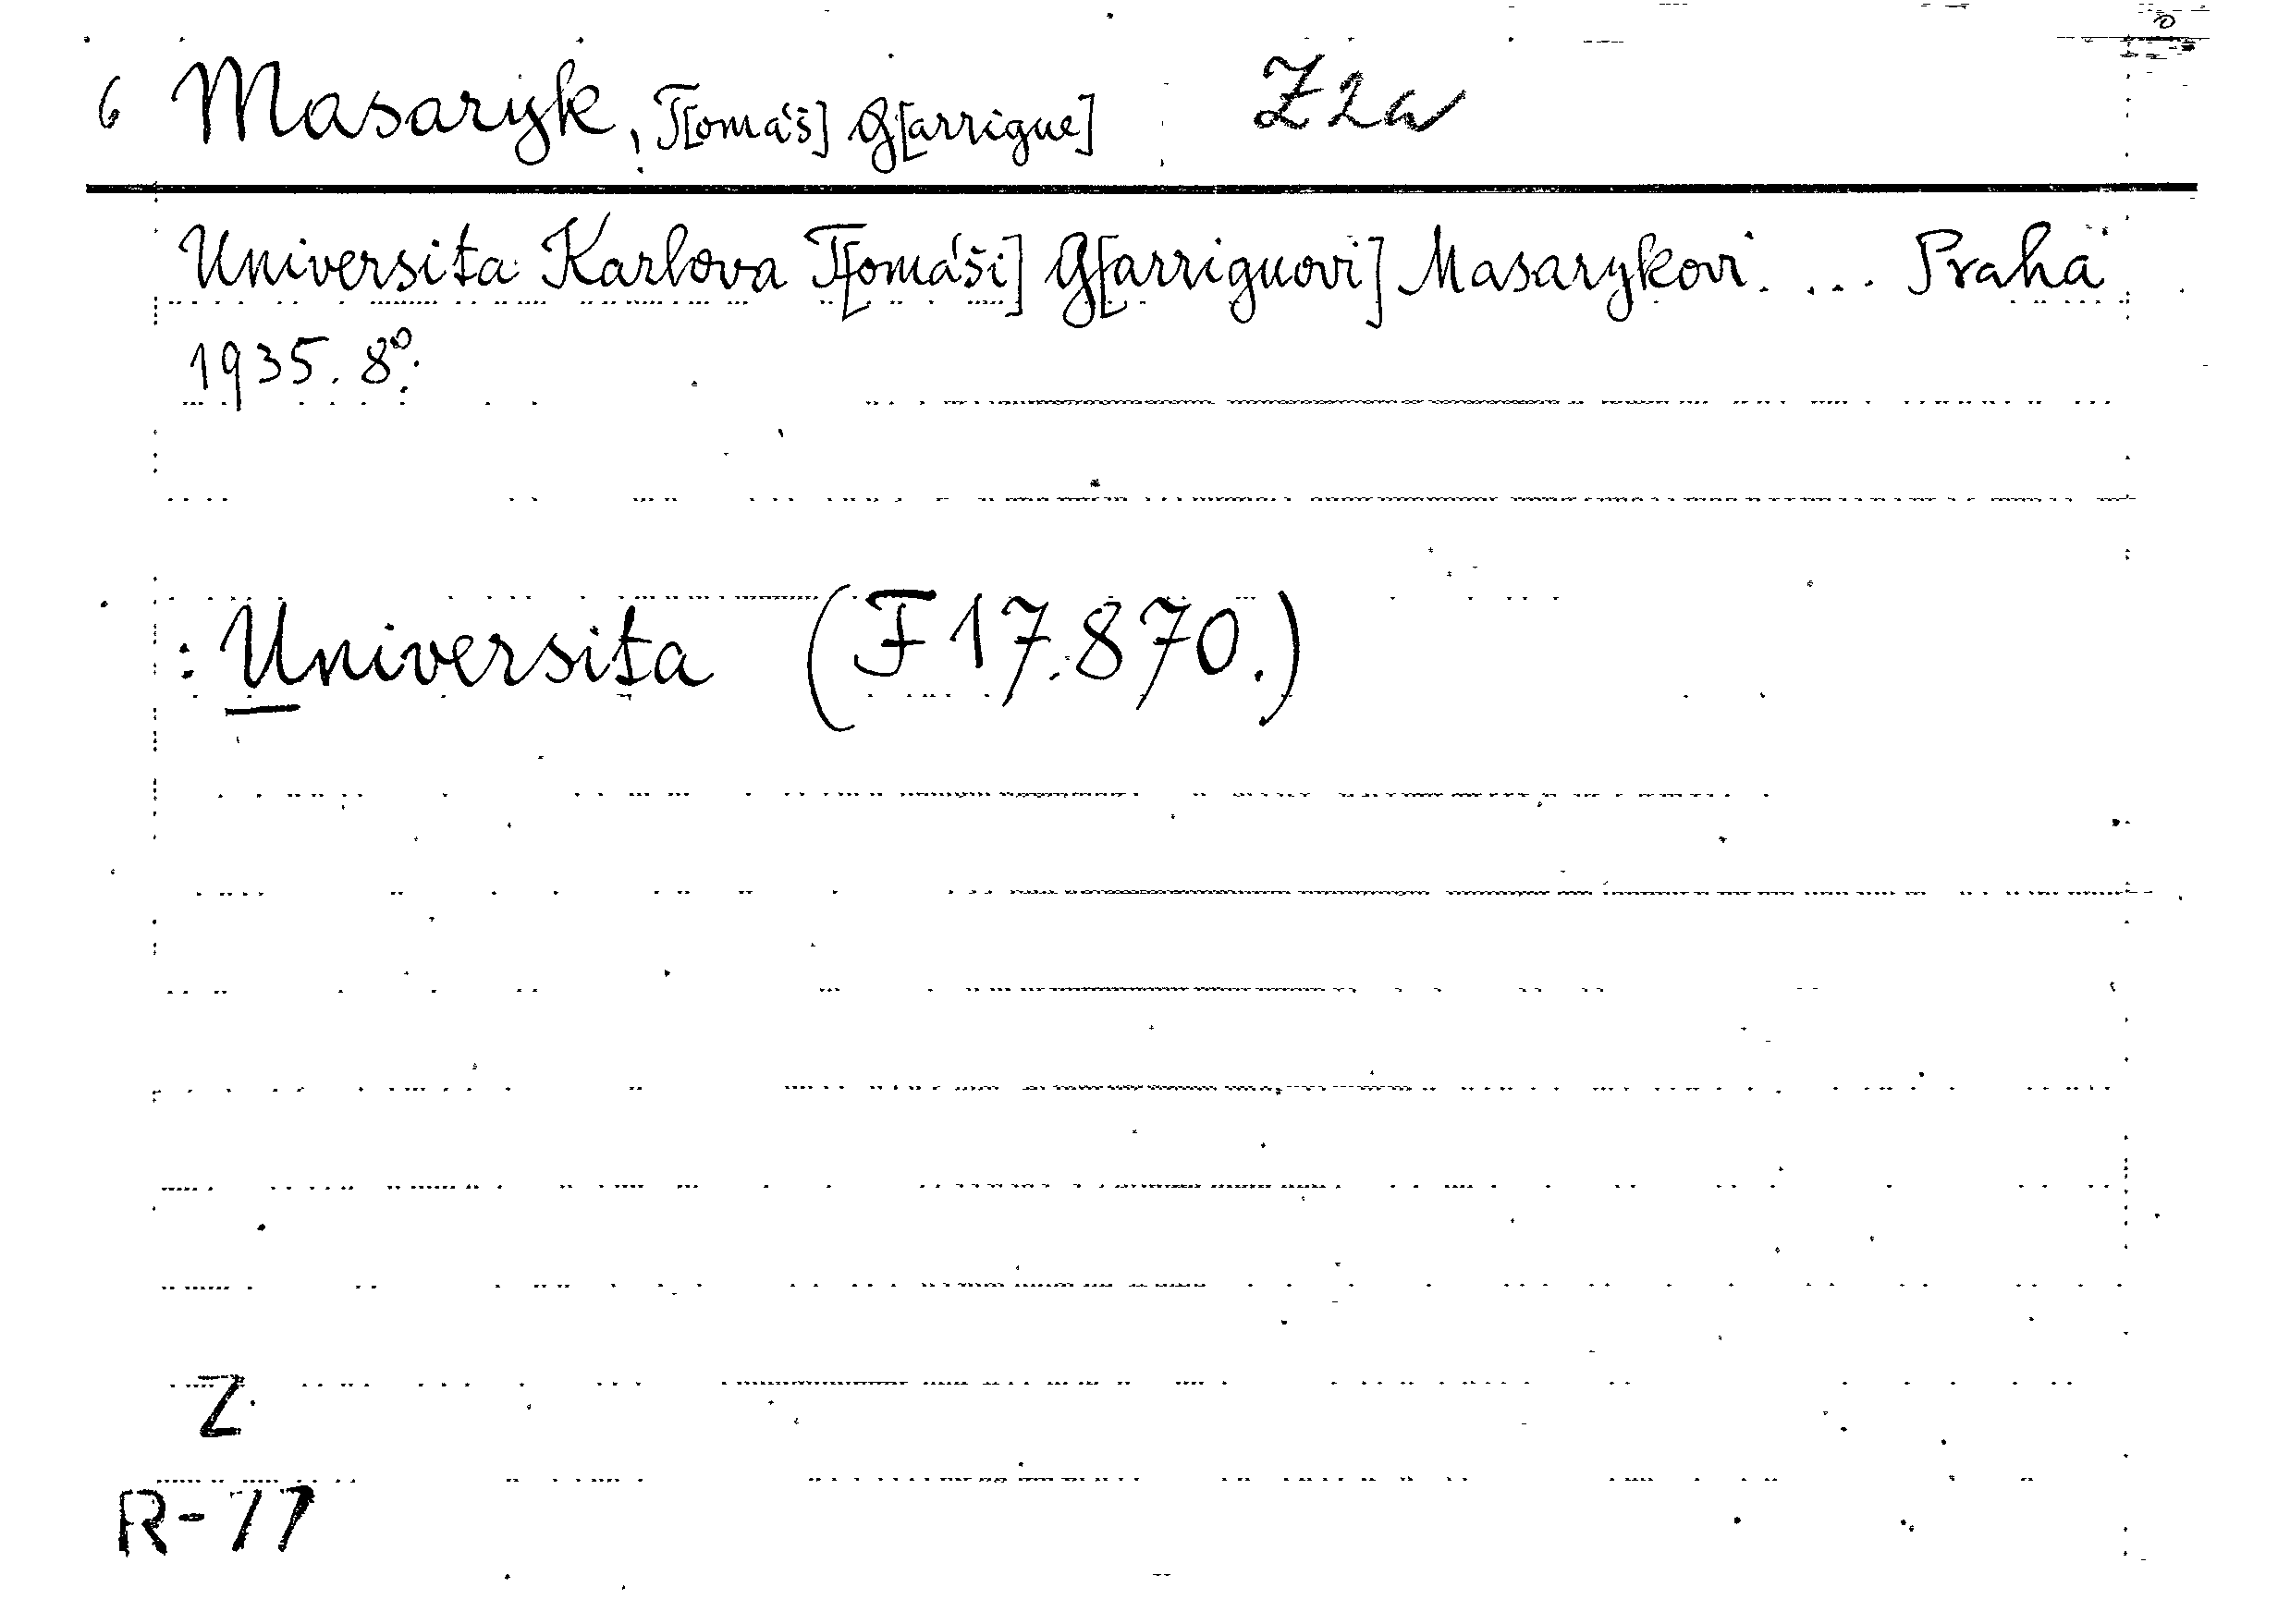 6 Masaryk, T[omáš] G[arrigue] Z2a
Universita Karlova T[omáši] G[arriguovi] Masarykovi. ... Praha
1935. 8°.
: Universita (F 17.870.)
Z
R-77